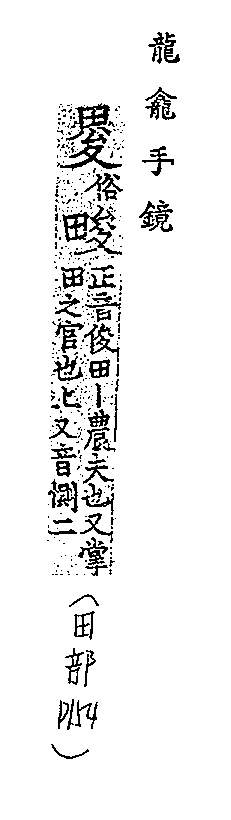 龍龕手鏡
畟俗畯正音俊田丨農夫也又掌
田之官也上又音惻二
（田部P154）